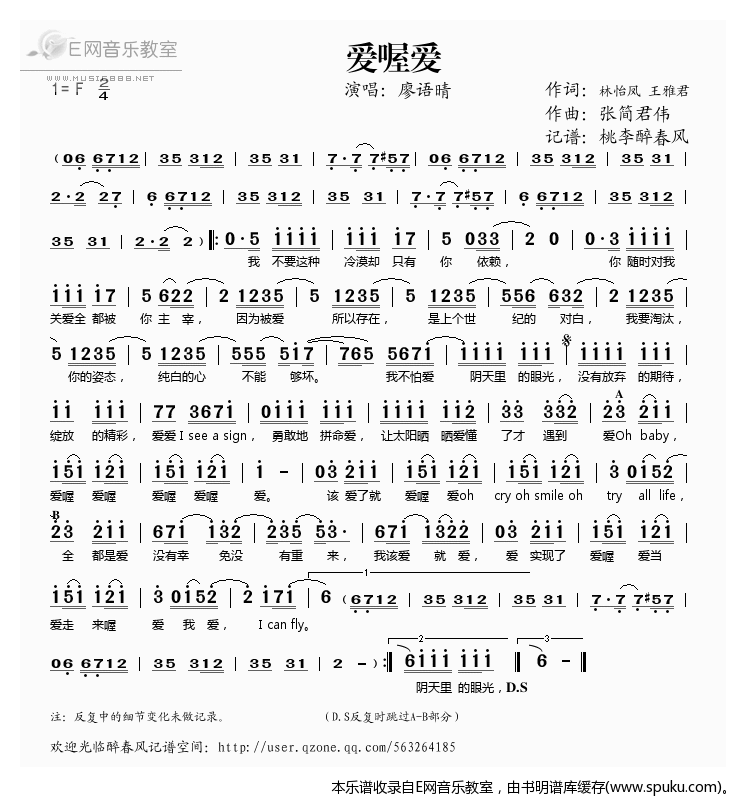 E网音乐教室
WWW.MUSIC888.NET
爱喔爱
1= F 2/4
演唱：廖语晴
作词：林怡凤 王雅君
作曲：张简君伟
记谱：桃李醉春风
(06 6712 | 35 312 | 35 31 | 7·7 7#57 | 06 6712 | 35 312 |
2·2 27 | 6 6712 | 35 312 | 35 31 | 7·7 7#57 | 6 6712 | 35 312 |
35 31 | 2·2 2 ) ‖: 0·5 1111 | 111 17 | 5 033 | 2 0 | 0·3 1111 |
我 不要这种 冷漠却 只有 你 依赖， 你 随时对我
111 17 | 5 622 | 2 1235 | 5 1235 | 5 1235 | 556 632 | 2 1235 |
关爱全 都被 你 主 宰， 因为被爱 所以存在， 是上个世 纪的 对白， 我要淘汰，
5 1235 | 5 1235 | 555 517 | 765 5671 | 1111 111 | 1111 111 |
你的姿态， 纯白的心 不能 够坏。 我不怕爱 阴天里 的眼光， 没有放弃 的期待，
11 111 | 77 3671 | 0111 111 | 1111 112 | 33 332 | 23 211 |
A
绽放 的精彩， 爱爱 I see a sign， 勇敢地 拼命爱， 让太阳晒 晒爱懂 了才 遇到 爱Oh baby，
151 121 | 151 121 | 1 - | 03 211 | 151 121 | 151 121 | 3 0152 |
爱喔 爱喔 爱喔 爱喔 爱。 该 爱了就 爱喔 爱oh cry oh smile oh try all life，
B
23 211 | 671 132 | 235 53· | 671 1322 | 03 211 | 151 121 |
全 都是爱 没有幸 免没 有重 来， 我该爱 就 爱， 爱 实现了 爱喔 爱当
151 121 | 3 0152 | 2 171 | 6 (6712 | 35 312 | 35 31 | 7·7 7#57 |
1
爱走 来喔 爱 我 爱， I can fly。
06 6712 | 35 312 | 35 31 | 2 - ) :‖ 6111 111 ‖ 6 - ‖
2
3
阴天里 的眼光，D.S
注：反复中的细节变化未做记录。
（D.S反复时跳过A-B部分）
欢迎光临醉春风记谱空间：http://user.qzone.qq.com/563264185
本乐谱收录自E网音乐教室，由书明谱库缓存(www.spuku.com)。